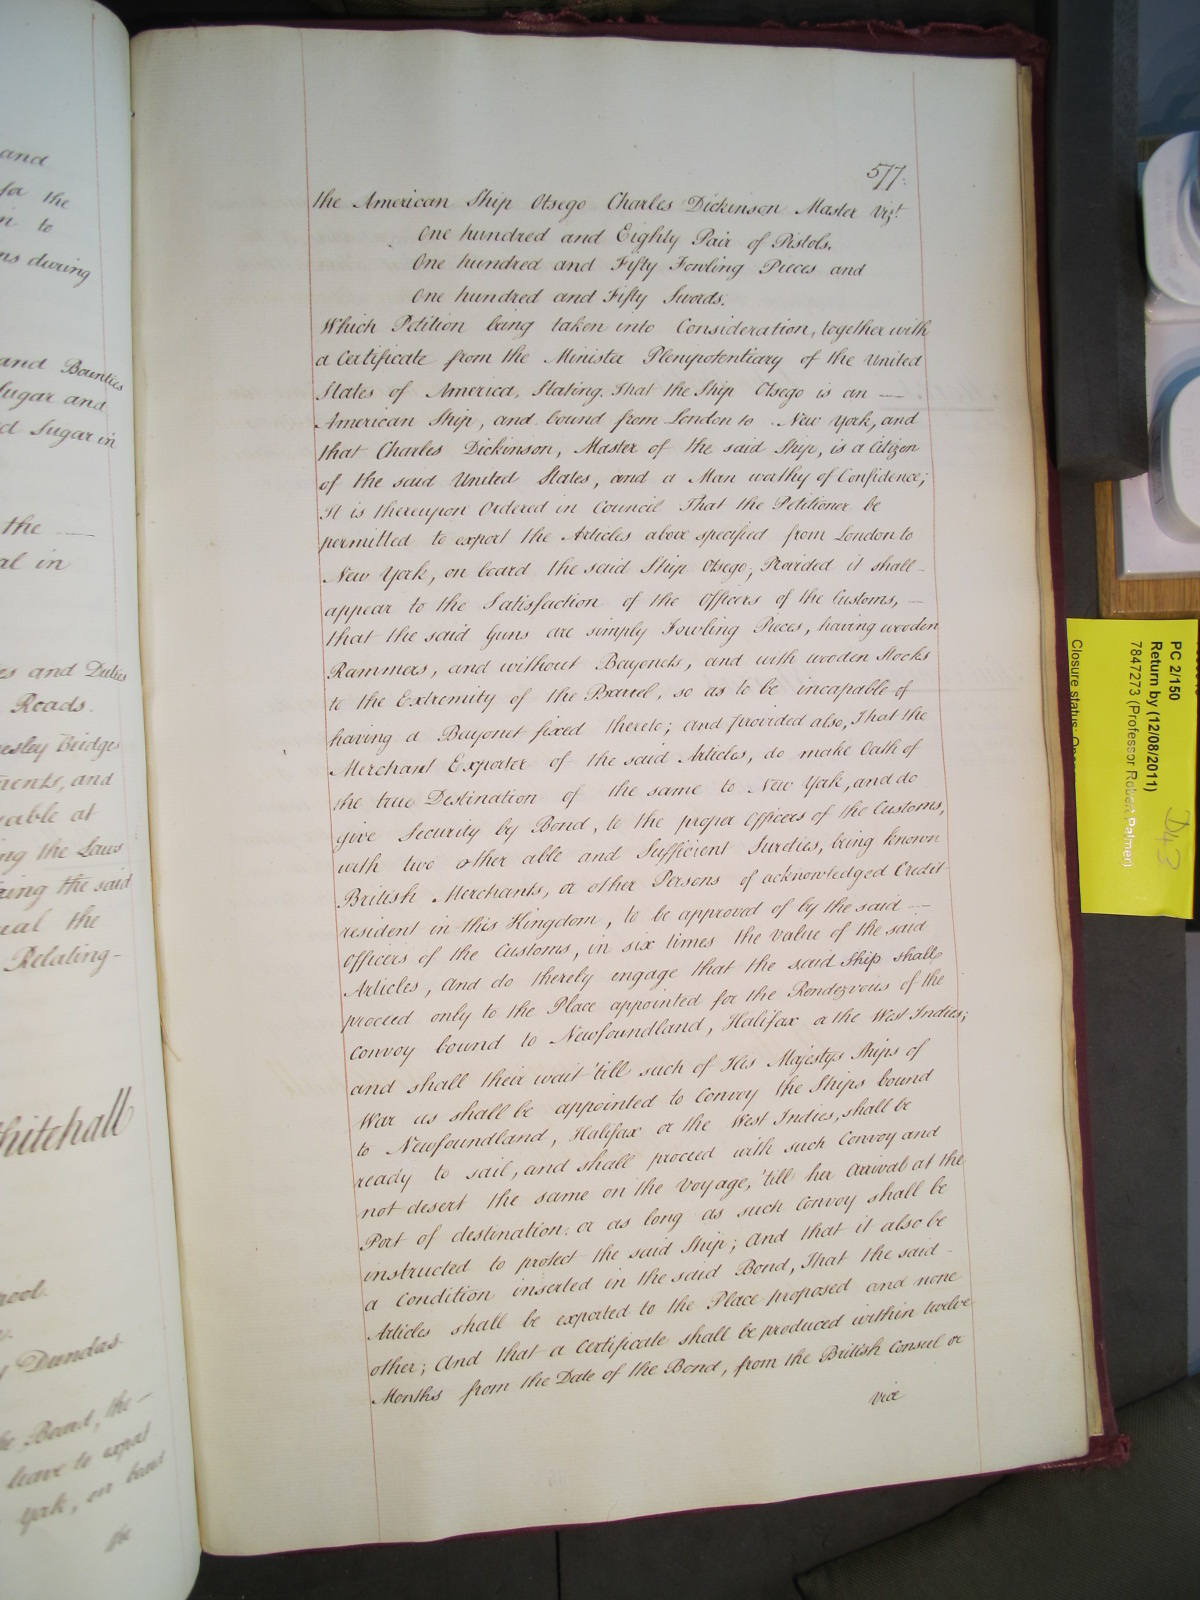 and
for the
n to
ns during
and Bounties
Sugar and
d Sugar in
the
al in
es and Duties
Roads.
esley Bridge
ments, and
yable at
ng the Laws
ring the said
ual the
Relating
Whitehall
rool.
y Dundas.
he Board, the
leave to export
York, on board
the
577.
the American Ship Otsego Charles Dickinson Master Vizt.
One hundred and Eighty Pair of Pistols.
One hundred and Fifty Fowling Pieces and
One hundred and Fifty Swords.
Which Petition being taken into Consideration, together with
a Certificate from the Minister Plenipotentiary of the United
States of America, Stating, That the Ship Otsego is an —
American Ship, and bound from London to New York, and
that Charles Dickinson, Master of the said Ship, is a Citizen
of the said United States, and a Man worthy of Confidence;
It is thereupon Ordered in Council That the Petitioner be
permitted to export the Articles above specified from London to
New York, on board the said Ship Otsego; Provided it shall
appear to the Satisfaction of the Officers of the Customs, —
that the said Guns are simply Fowling Pieces, having wooden
Rammers, and without Bayonets, and with wooden Stocks
to the Extremity of the Barrel, so as to be incapable of
having a Bayonet fixed thereto; and provided also, That the
Merchant Exporter of the said Articles, do make Oath of
the true Destination of the same to New York, and do
give Security by Bond, to the proper Officers of the Customs,
with two other able and Sufficient Sureties, being known
British Merchants, or other Persons of acknowledged Credit
resident in this Kingdom, to be approved of by the said —
Officers of the Customs, in six times the value of the said
Articles, and do thereby engage that the said Ship shall
proceed only to the Place appointed for the Rendezvous of the
Convoy bound to Newfoundland, Halifax or the West Indies;
and shall their wait 'till such of His Majestys Ships of
War as shall be appointed to Convoy the Ships bound
to Newfoundland, Halifax or the West Indies, shall be
ready to sail, and shall proceed with such Convoy and
not desert the same on the Voyage, 'till her Arrival at the
Port of destination: or as long as such Convoy shall be
instructed to protect the said Ship; And that it also be
a Condition inserted in the said Bond, That the said
Articles shall be exported to the Place proposed and none
other; And that a Certificate shall be produced within twelve
Months from the Date of the Bond, from the British Consul or
vice
PC 2/150
Return by (12/08/2011)
7847273 (Professor Robert Palmer)
Closure status:
D43